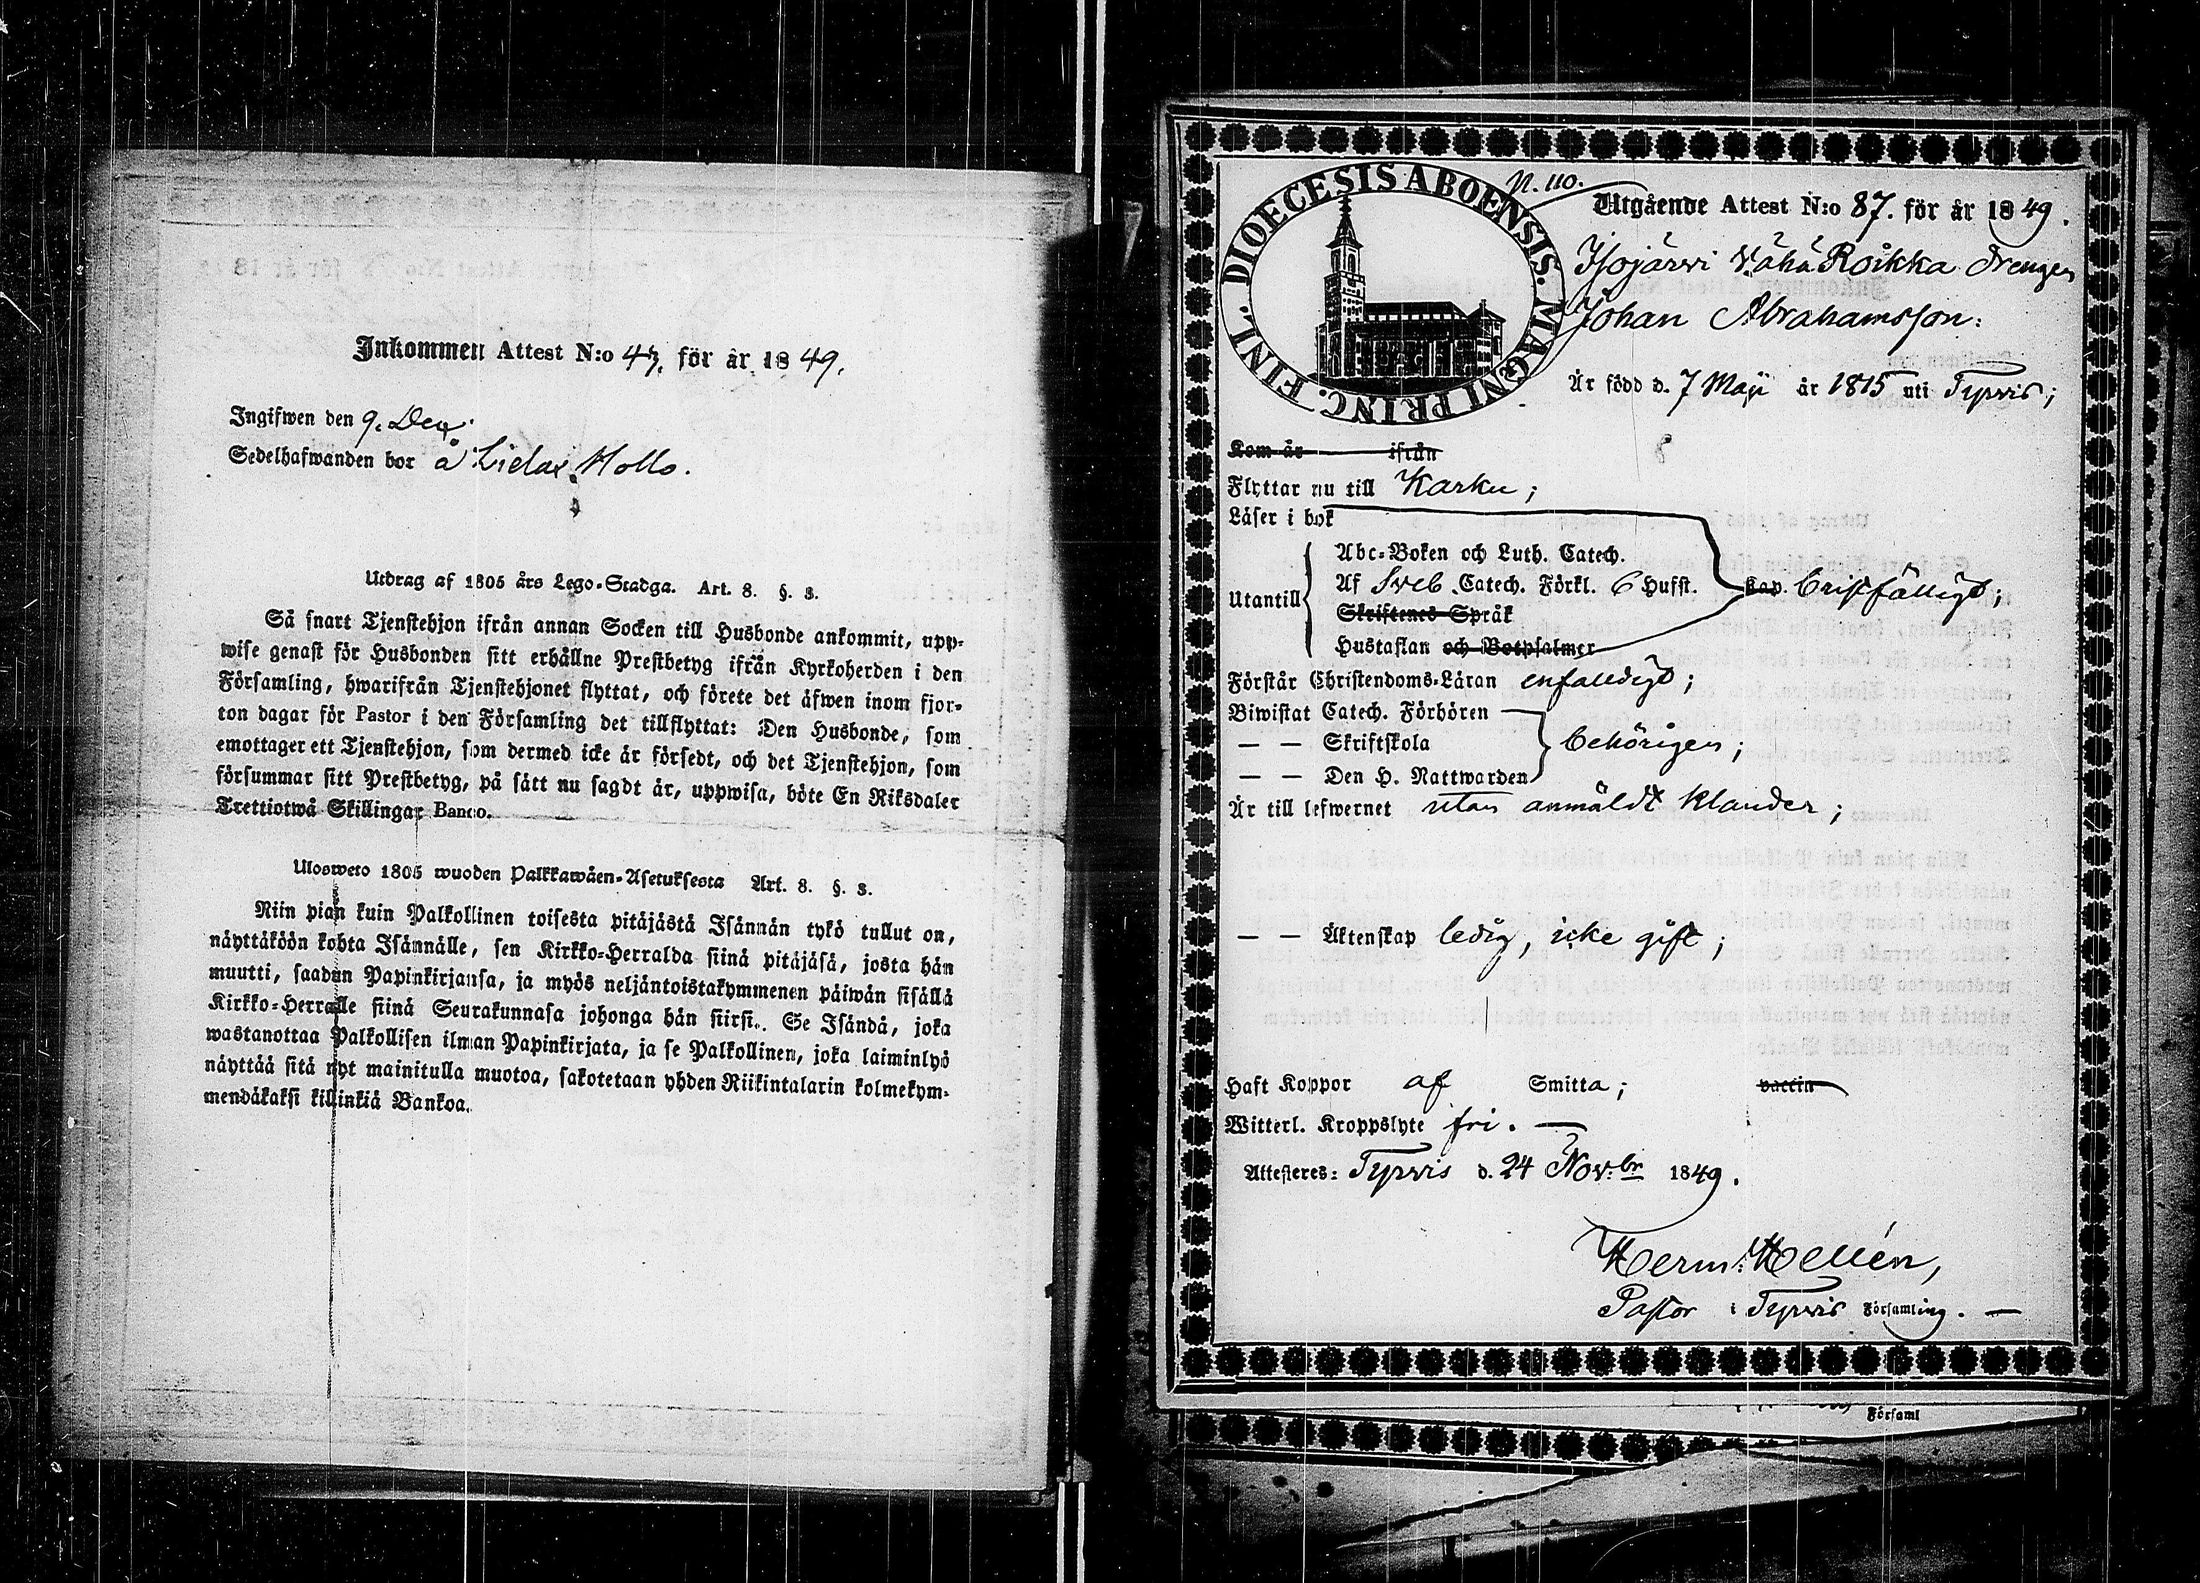 Inkommen Attest N:o 47. för år 1849.
Ingifwen den 9. Dec.
Sedelhafwanden bor å Lielax Hollo.
Utdrag af 1805 års Lego-Stadga. Art. 8. §. 3.
Så snart Tjenstehjon ifrån annan Socken till Husbonde ankommit, upp-
wise genast för Husbonden sitt erhållne Prestbetyg ifrån Kyrkoherden i den
Församling, hwarifrån Tjenstehjonet flyttat, och förete det äfwen inom fjor-
ton dagar för Pastor i den Församling det tillflyttat: Den Husbonde, som
emottager ett Tjenstehjon, som dermed icke är försedt, och det Tjenstehjon, som
försummar sitt Prestbetyg, på sätt nu sagdt är, uppwisa, böte En Riksdaler
Trettiotwå Skillingar Banco.
Ulosweto 1805 wuoden Palkkawäen-Asetuksesta Art. 8. §. 3.
Niin pian kuin Palkollinen toisesta pitäjästä Isännän tykö tullut on,
näyttäköön kohta Isännälle, sen Kirkko-Herralda siinä pitäjäsä, josta hän
muutti, saadun Papinkirjansa, ja myös neljäntoistakymmenen päiwän sisällä
Kirkko-Herralle siinä Seurakunnasa johonga hän siirsi. Se Isändä, joka
wastanottaa Palkollisen ilman Papinkirjata, ja se Palkollinen, joka laiminlyö
näyttää sitä nyt mainitulla muotoa, sakotetaan yhden Riikintalarin kolmekym-
mendäkaksi killinkiä Bankoa.
DIOECESIS ABOENSIS. MAGNI PRINC. FINL.
N. 110.
Utgående Attest N:o 87. för år 1849.
Isojärwi Wähä Roikka drengen
Johan Abrahamsson:
Är född d. 7 Maji år 1815 uti Tyrwis;
Kom år ifrån
Flyttar nu till Karku;
Läser i bok
Abc-Boken och Luth. Catech.
Utantill Af Sveb. Catech. Förkl. 6 Hufst. Kap. bristfälligt;
Skriftenes Språk
Hustaflan och Botpsalmer
Förstår Christendoms-Läran enfalldigt;
Biwistat Catech. Förhören
— — Skriftskola behörigen;
— — Den H. Nattwarden
Är till lefwernet utan anmäldt klander;
— — Äktenskap ledig, icke gift;
Haft Koppor af Smitta; vaccin
Witterl. Kroppslyte fri. —
Attesteres: Tyrwis d. 24 Nov:br 1849.
Herm: Hellén,
Pastor i Tyrwis Församling. —
Församl